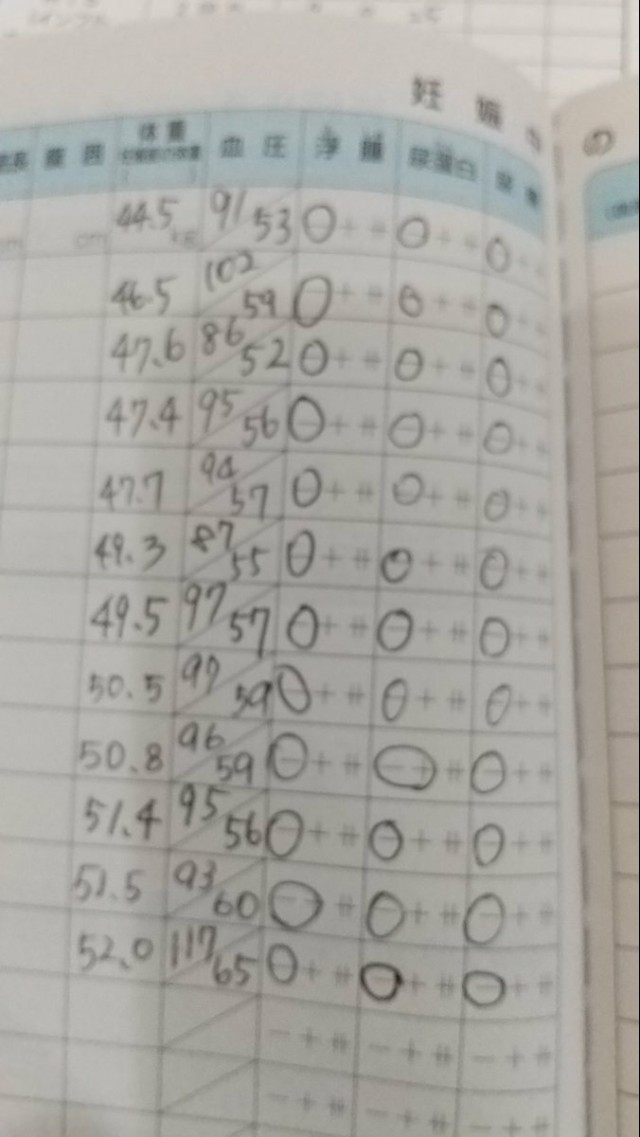 妊 娠 の
腹 囲 体重 血 圧 浮 腫 尿蛋白 尿
cm cm 44.5 kg 91/53 - + ⧺ - + ⧺ - + +
46.5 102/59 - + ⧺ - + ⧺ - + +
47.6 86/52 - + ⧺ - + ⧺ - + +
47.4 95/56 - + ⧺ - + ⧺ - + +
47.7 94/57 - + ⧺ - + ⧺ - + +
49.3 87/55 - + ⧺ - + ⧺ - + +
49.5 97/57 - + ⧺ - + ⧺ - + +
50.5 97/59 - + ⧺ - + ⧺ - + +
50.8 96/59 - + ⧺ - + ⧺ - + ⧺
51.4 95/56 - + ⧺ - + ⧺ - + ⧺
51.5 93/60 - + ⧺ - + ⧺ - + ⧺
52.0 117/65 - + ⧺ - + ⧺ - + ⧺
- + ⧺ - + ⧺ - + ⧺
- + ⧺ - + ⧺ - + ⧺